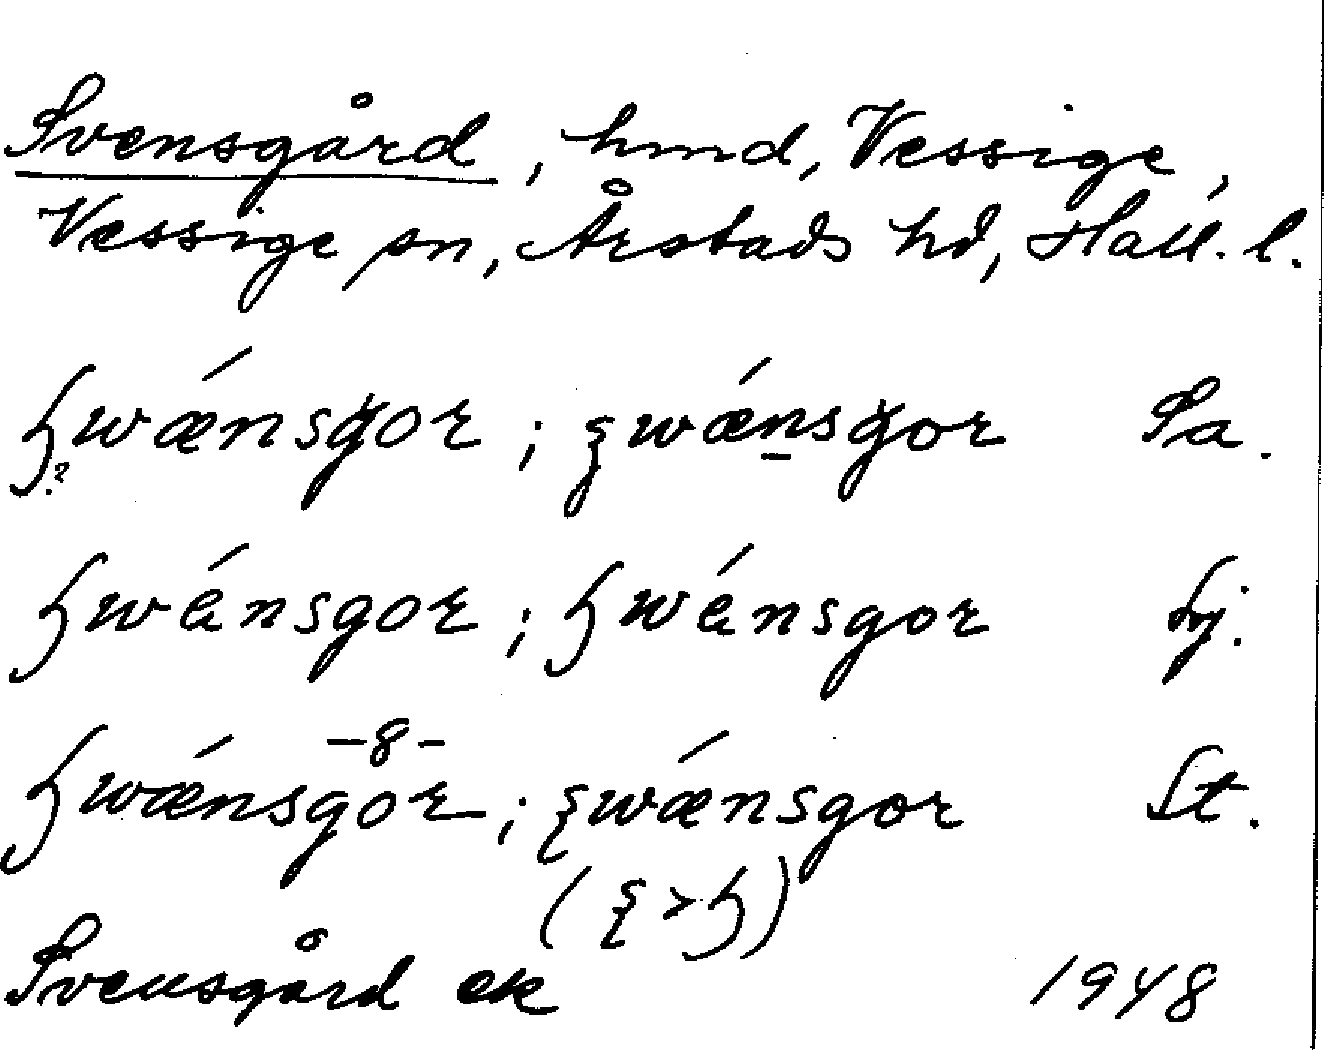 Svensgård, hmd, Vessige,
Vessige sn, Årstads hd, Hall. l.
ɧwǽnsgor; wǽnsgor Sa.
?
ɧwénsgor; ɧwénsgor Lj.
-8-
ɧwǽnsgor; wǽnsgor St.
( > ɧ)
Svensgård ek 1948